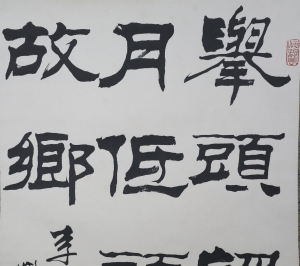 舉頭望
月低頭
故鄉
李